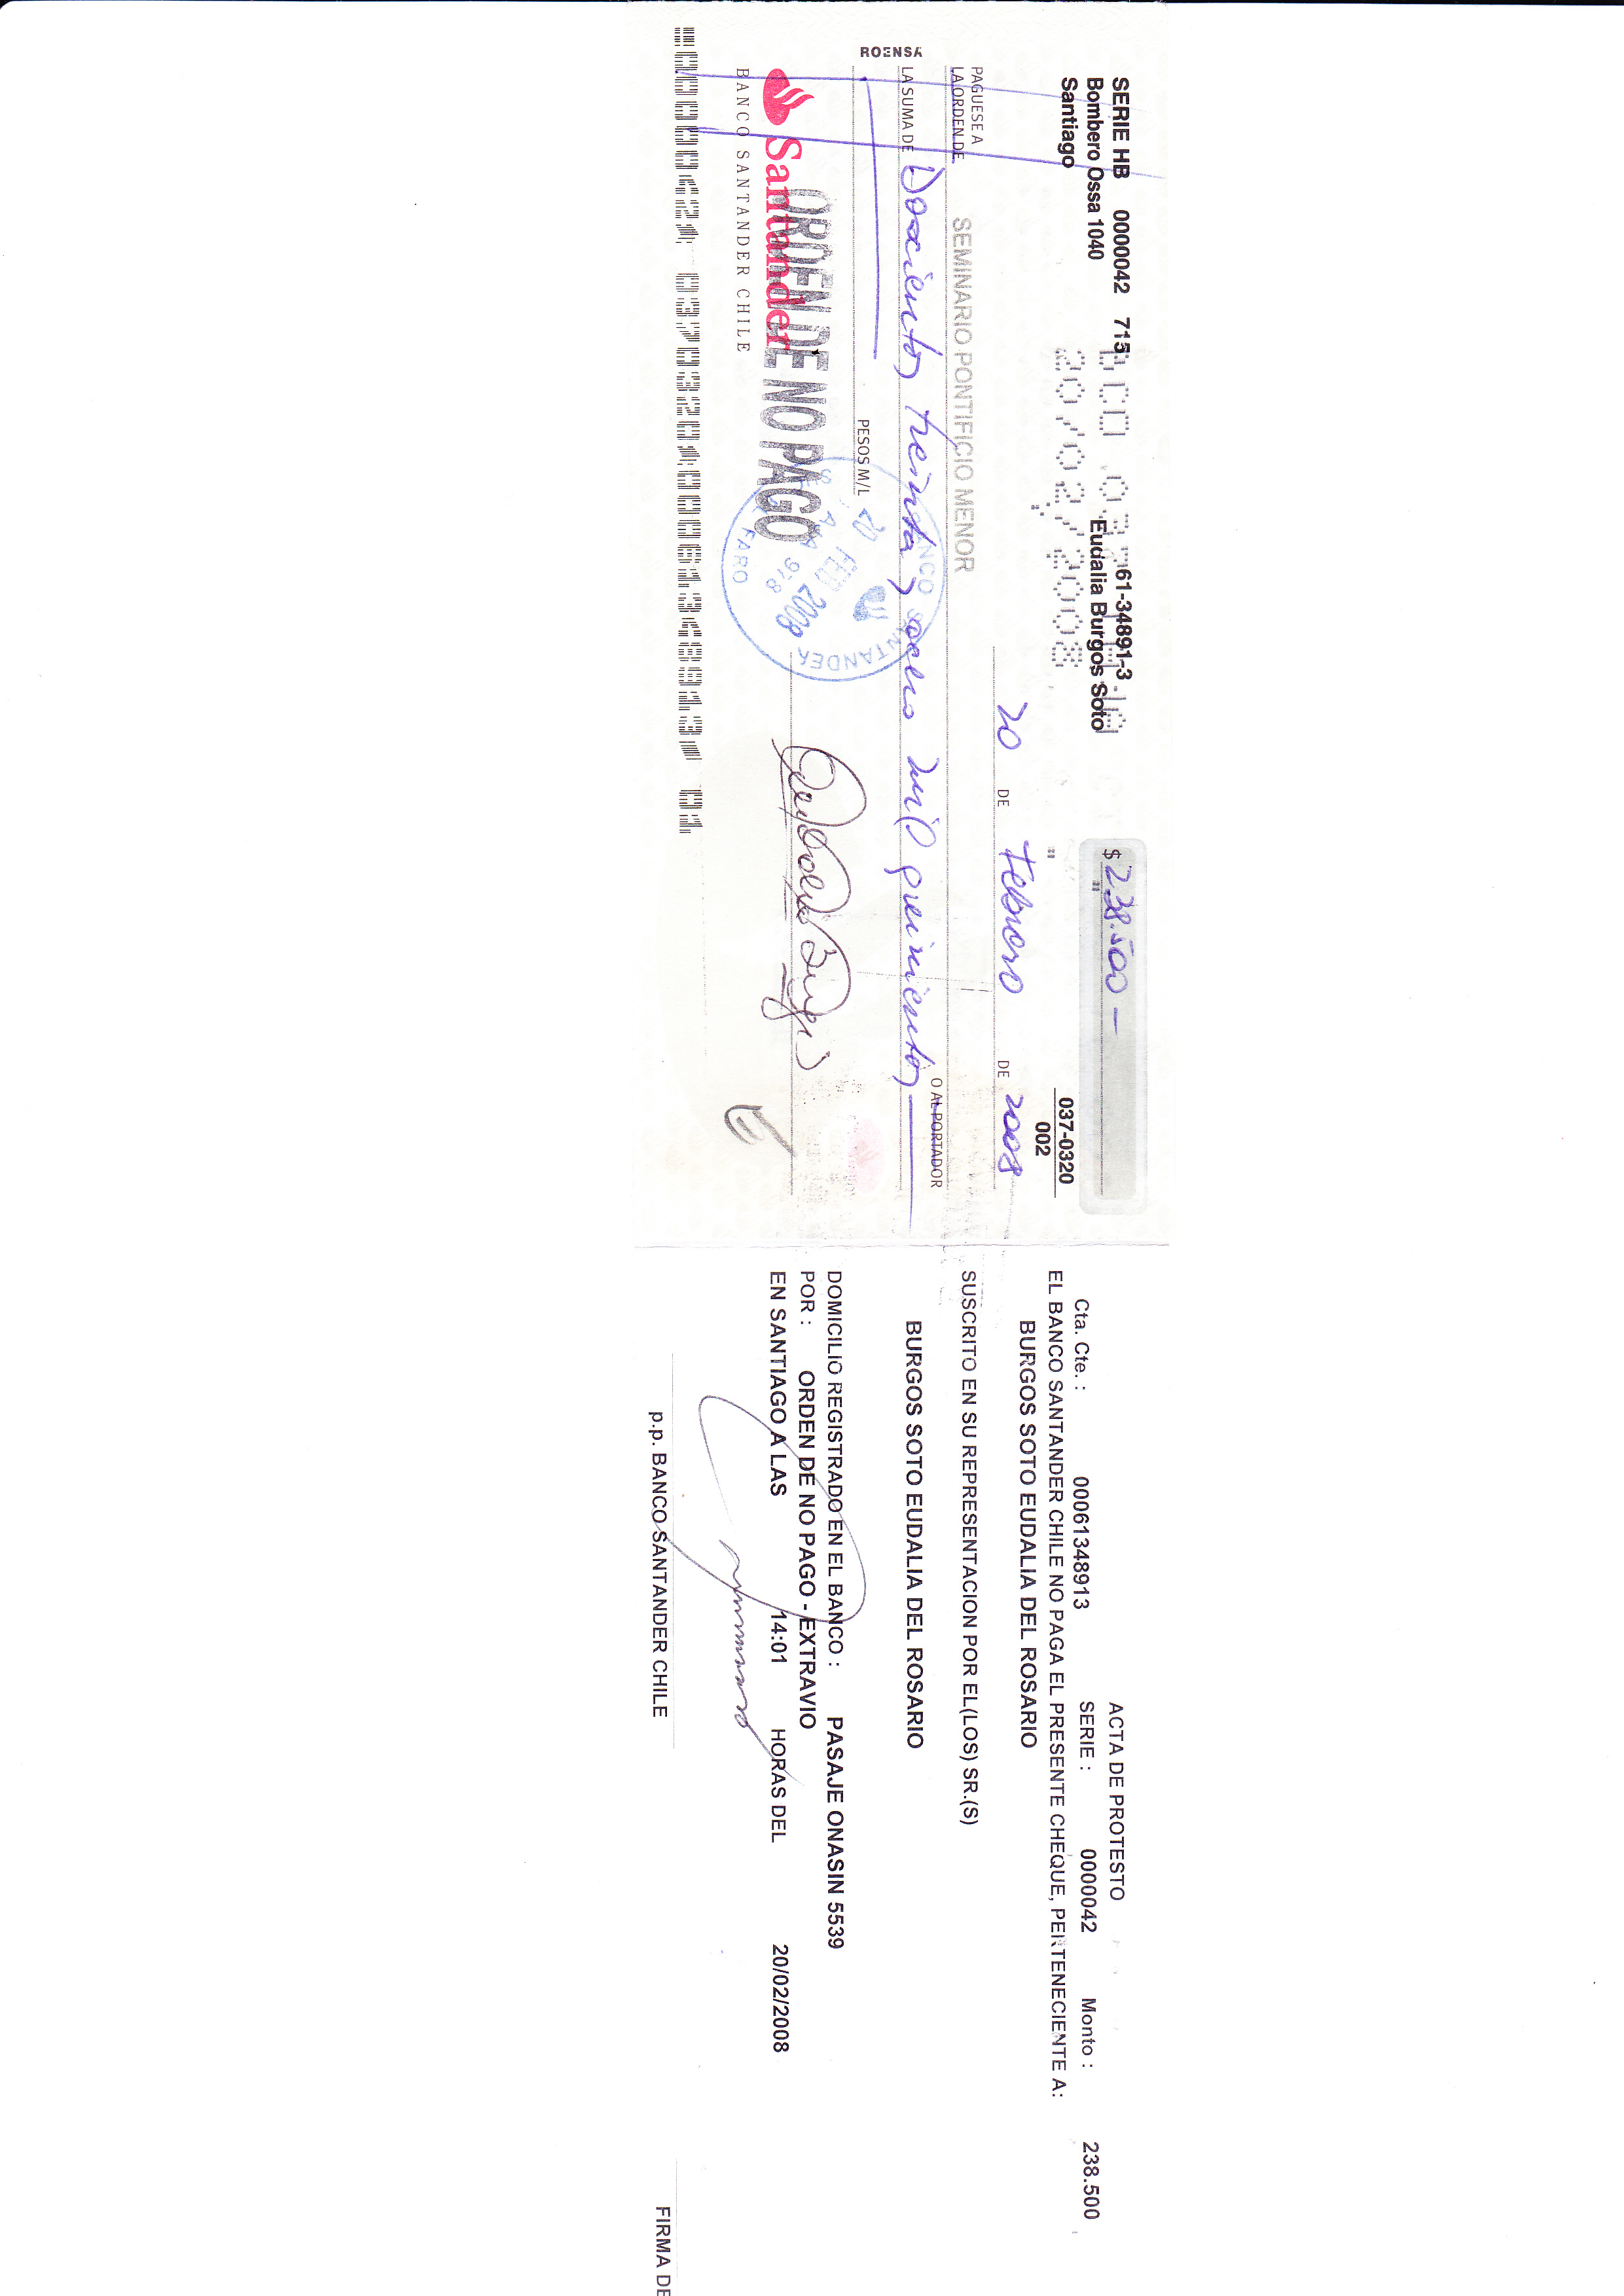 SERIE HB 0000042 715 61-34891-3 $ 238.500
Bombero Ossa 1040 Eudalia Burgos Soto
Santiago 20/02/2008
037-0320
002
20 DE Febrero DE 2008
PAGUESE A
LA ORDEN DE SEMINARIO PONTIFICIO MENOR
O AL PORTADOR
LA SUMA DE Doscientos treinta y ocho mil quinientos
PESOS M/L
ROENSA
Santander
BANCO SANTANDER CHILE
ORDEN DE NO PAGO
BANCO SANTANDER
20 FEB 2008
978
FARO
ACTA DE PROTESTO
Cta. Cte. : 00061348913 SERIE : 0000042 Monto : 238.500
EL BANCO SANTANDER CHILE NO PAGA EL PRESENTE CHEQUE, PERTENECIENTE A:
BURGOS SOTO EUDALIA DEL ROSARIO
SUSCRITO EN SU REPRESENTACION POR EL(LOS) SR.(S)
BURGOS SOTO EUDALIA DEL ROSARIO
DOMICILIO REGISTRADO EN EL BANCO : PASAJE ONASIN 5539
POR : ORDEN DE NO PAGO - EXTRAVIO
EN SANTIAGO A LAS 14:01 HORAS DEL 20/02/2008
p.p. BANCO SANTANDER CHILE
FIRMA DE